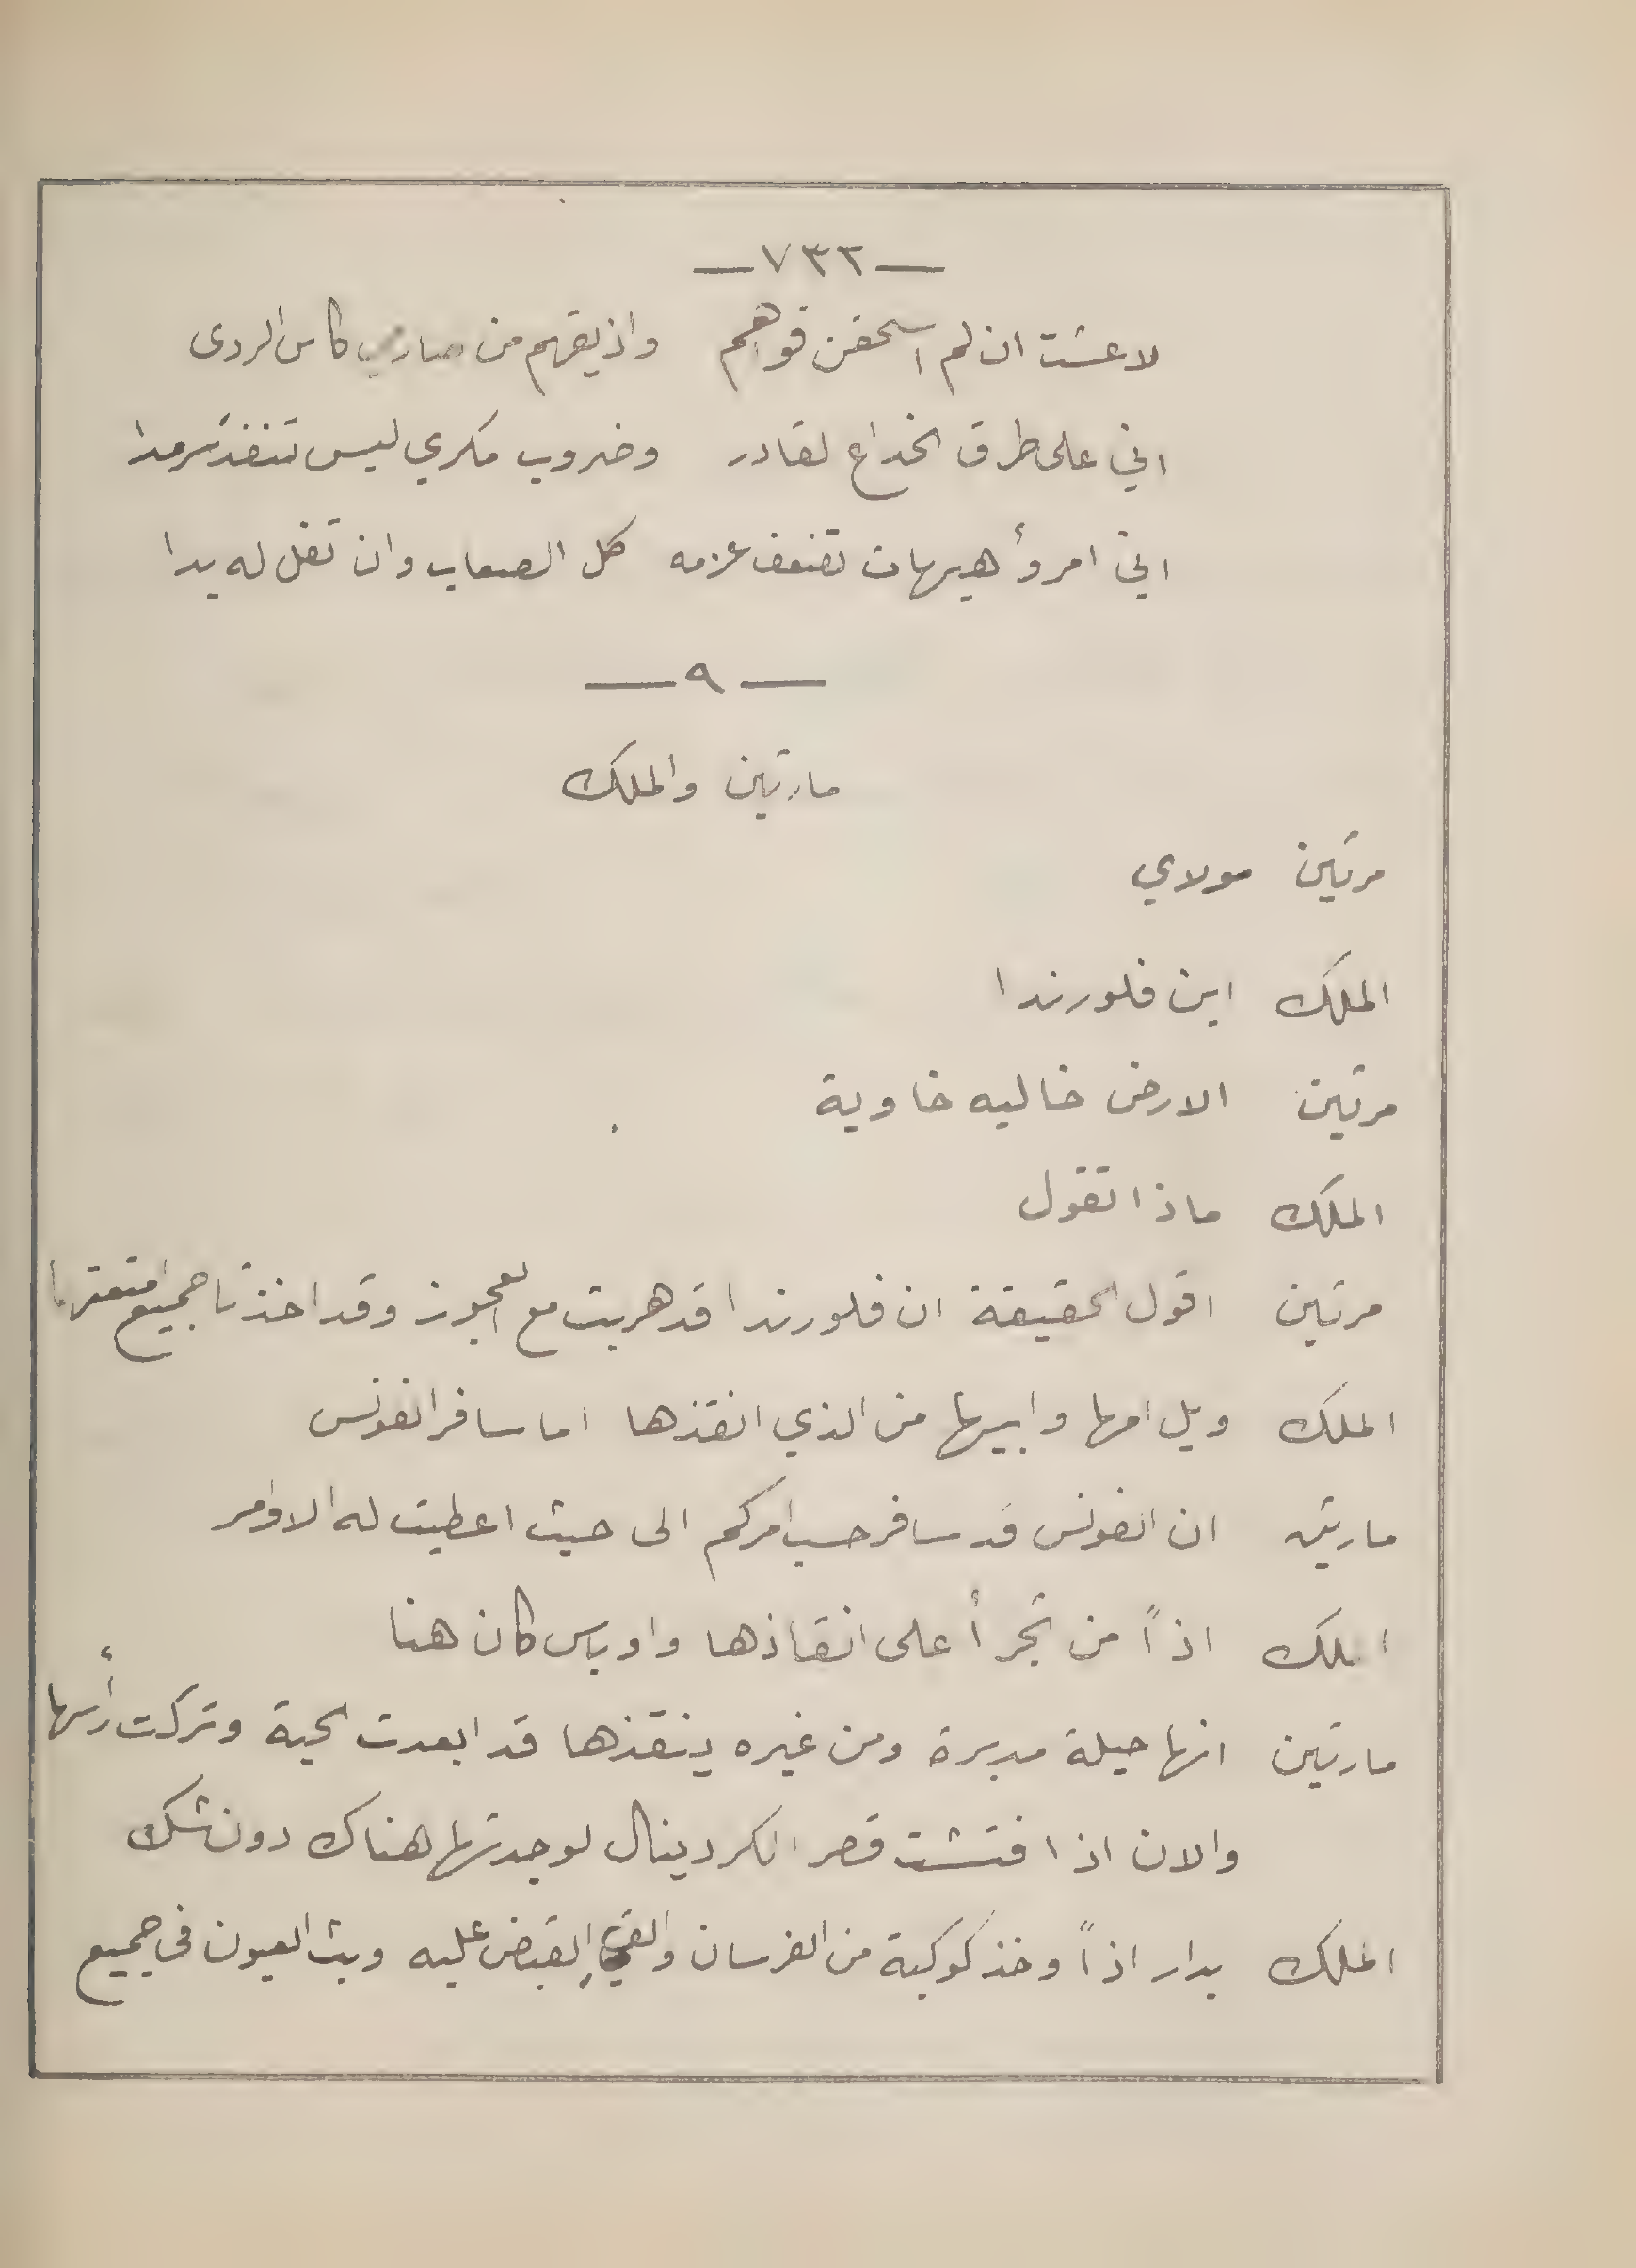 —٧٣٢—
لا عشت ان لم اسحقن قواهم واذيقهم من كاس الردى
اني على طرق الخداع لقادر وضروب مكري ليس تنفذ سرمدا
اني امروأ هيهات تضعف عزمه كل الصعاب وان تغل له يدا
— ٩ —
مارتين والملك
مرتين مولاي
الملك اين فلورندا
مرتين الارض خاليه خاوية
الملك ماذا تقول
مرتين اقول الحقيقة ان فلورندا قد هربت مع العجوز وقد اخذتا جميع امتعتها
الملك ويل امها وابيها من الذي انقذها اما سافر الفونس
مارتين ان الفونس قد سافر حسب امركم الى حيث اعطيت له الاوامر
الملك اذاً من تجرأ على انقاذها واوباس كان هنا
مارتين انها حيلة مدبرة ومن غيره ينقذها قد ابعدت الحية وتركت رأسها
والان اذا فتشت قصر الكردينال لوجدتها هناك دون شك
الملك بدار اذاً وخذ كوكبة من الفرسان والقي القبض عليه وبث العيون في جميع